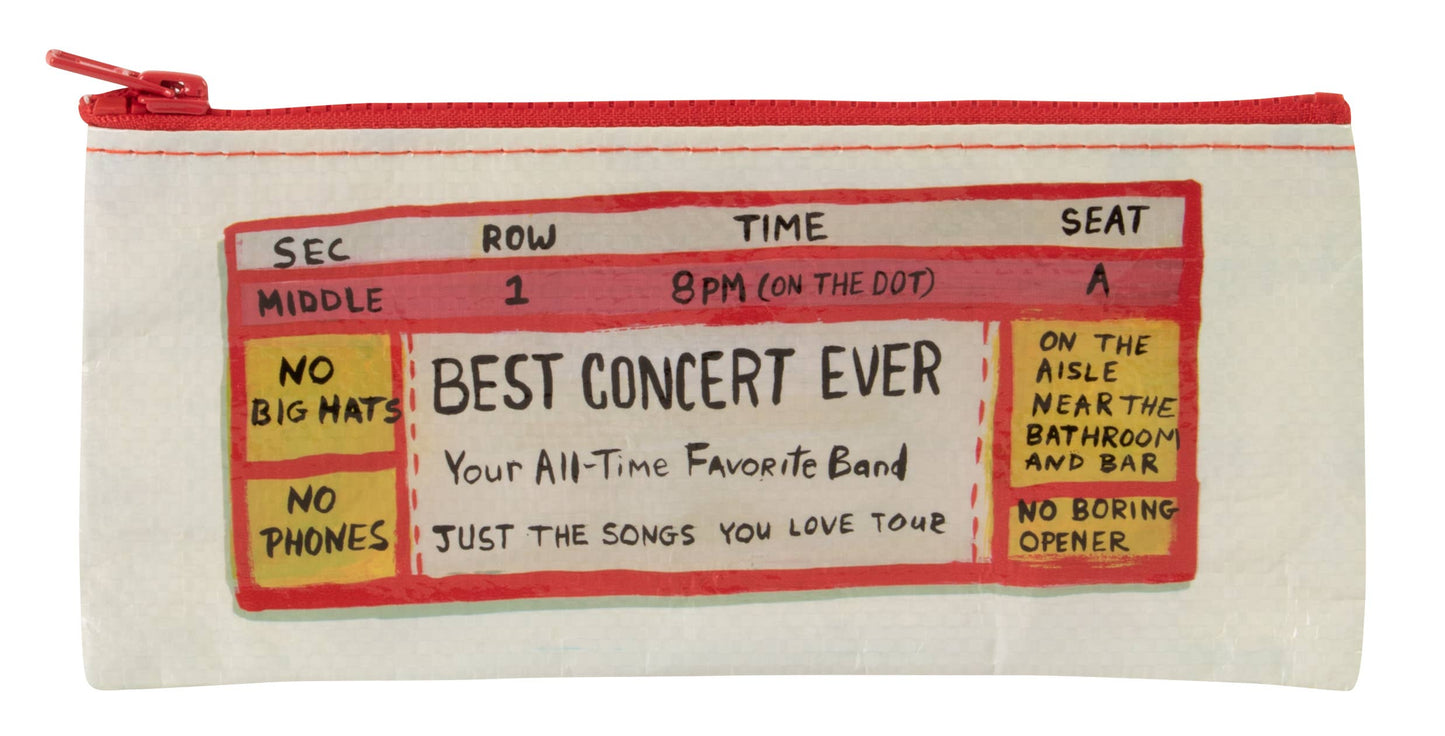 SEC ROW TIME SEAT
MIDDLE 1 8PM (ON THE DOT) A
NO
BIG HATS
NO
PHONES
BEST CONCERT EVER
Your All-Time FAVORITE Band
JUST THE SONGS YOU LOVE TOUR
ON THE
AISLE
NEAR THE
BATHROOM
AND BAR
NO BORING
OPENER